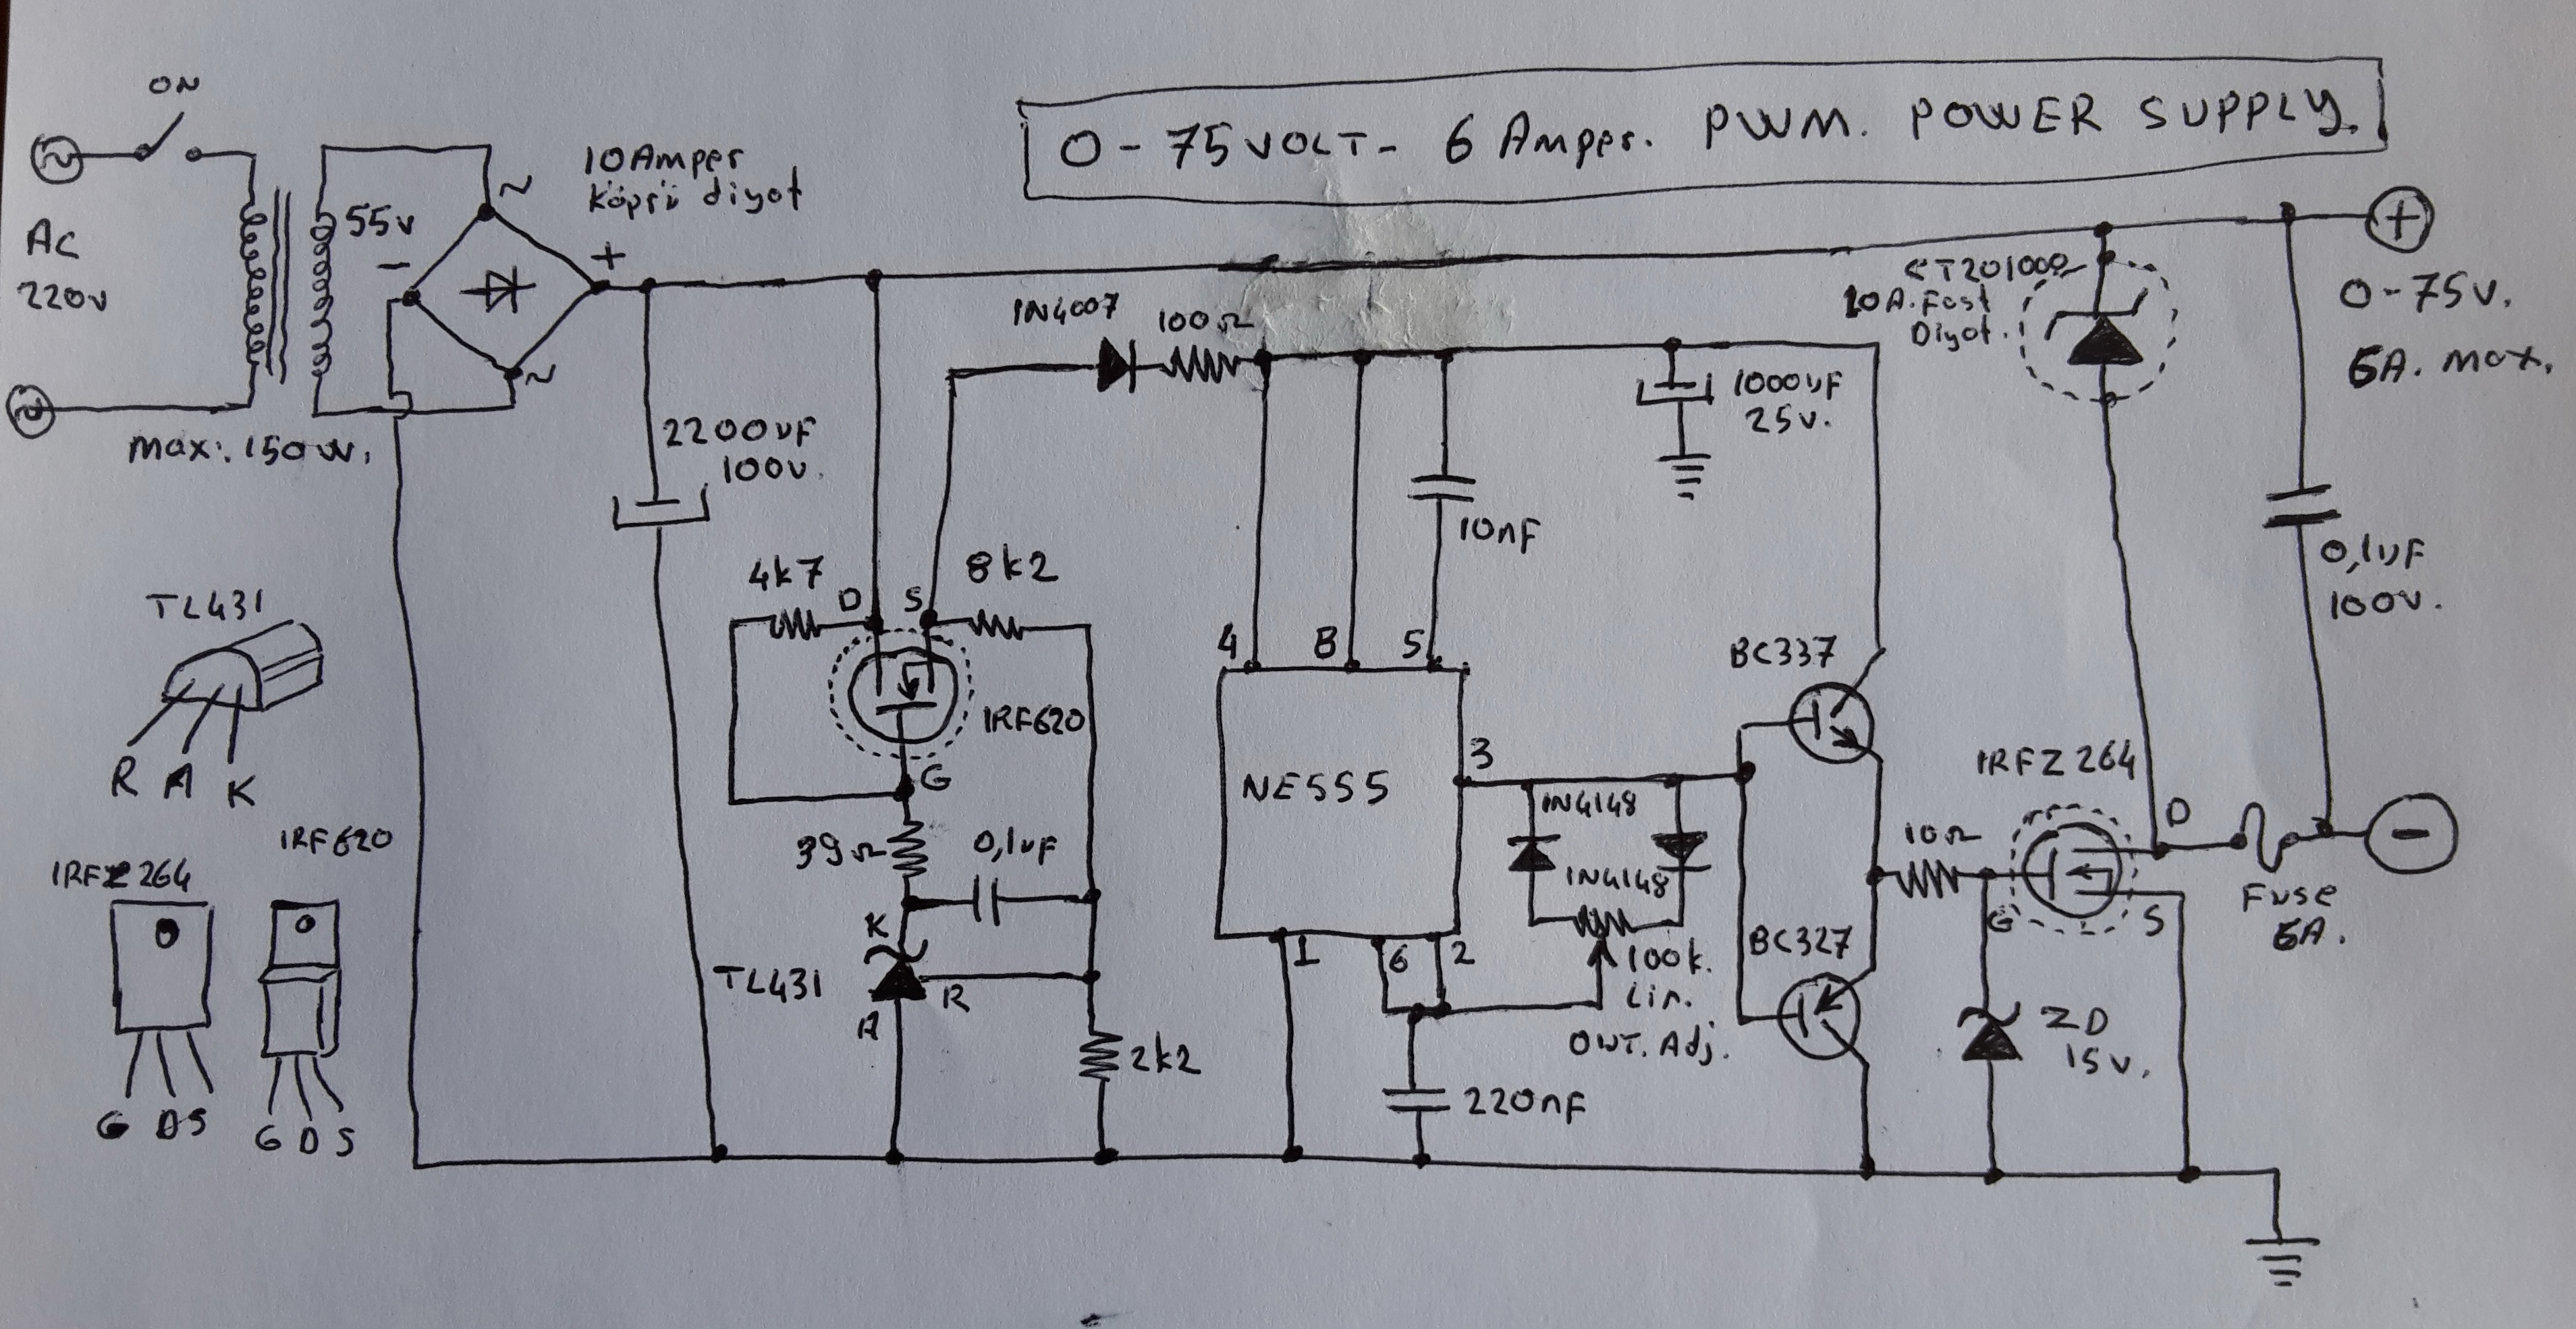 ON
0-75 VOLT- 6 Amper. PWM. POWER SUPPLY.
AC
220v
55v
-
+
~
~
max:. 150w.
10Amper
köprü diyot
2200uF
100v.
1N4007
100Ω
10nF
1000uF
25v.
10A. Fast
Diyot.
+
0-75v.
6A. max.
0,1uF
100v.
TL431
R A K
IRFZ264
G D S
IRF620
G D S
4k7
D
S
8k2
IRF620
G
39Ω
0,1uF
K
TL431
R
A
2k2
4
8
5
NE555
3
1
6
2
1N4148
1N4148
100k.
Lin.
OUT. Adj.
220nF
BC337
BC327
10Ω
IRFZ264
D
G
S
ZD
15v.
Fuse
6A.
-